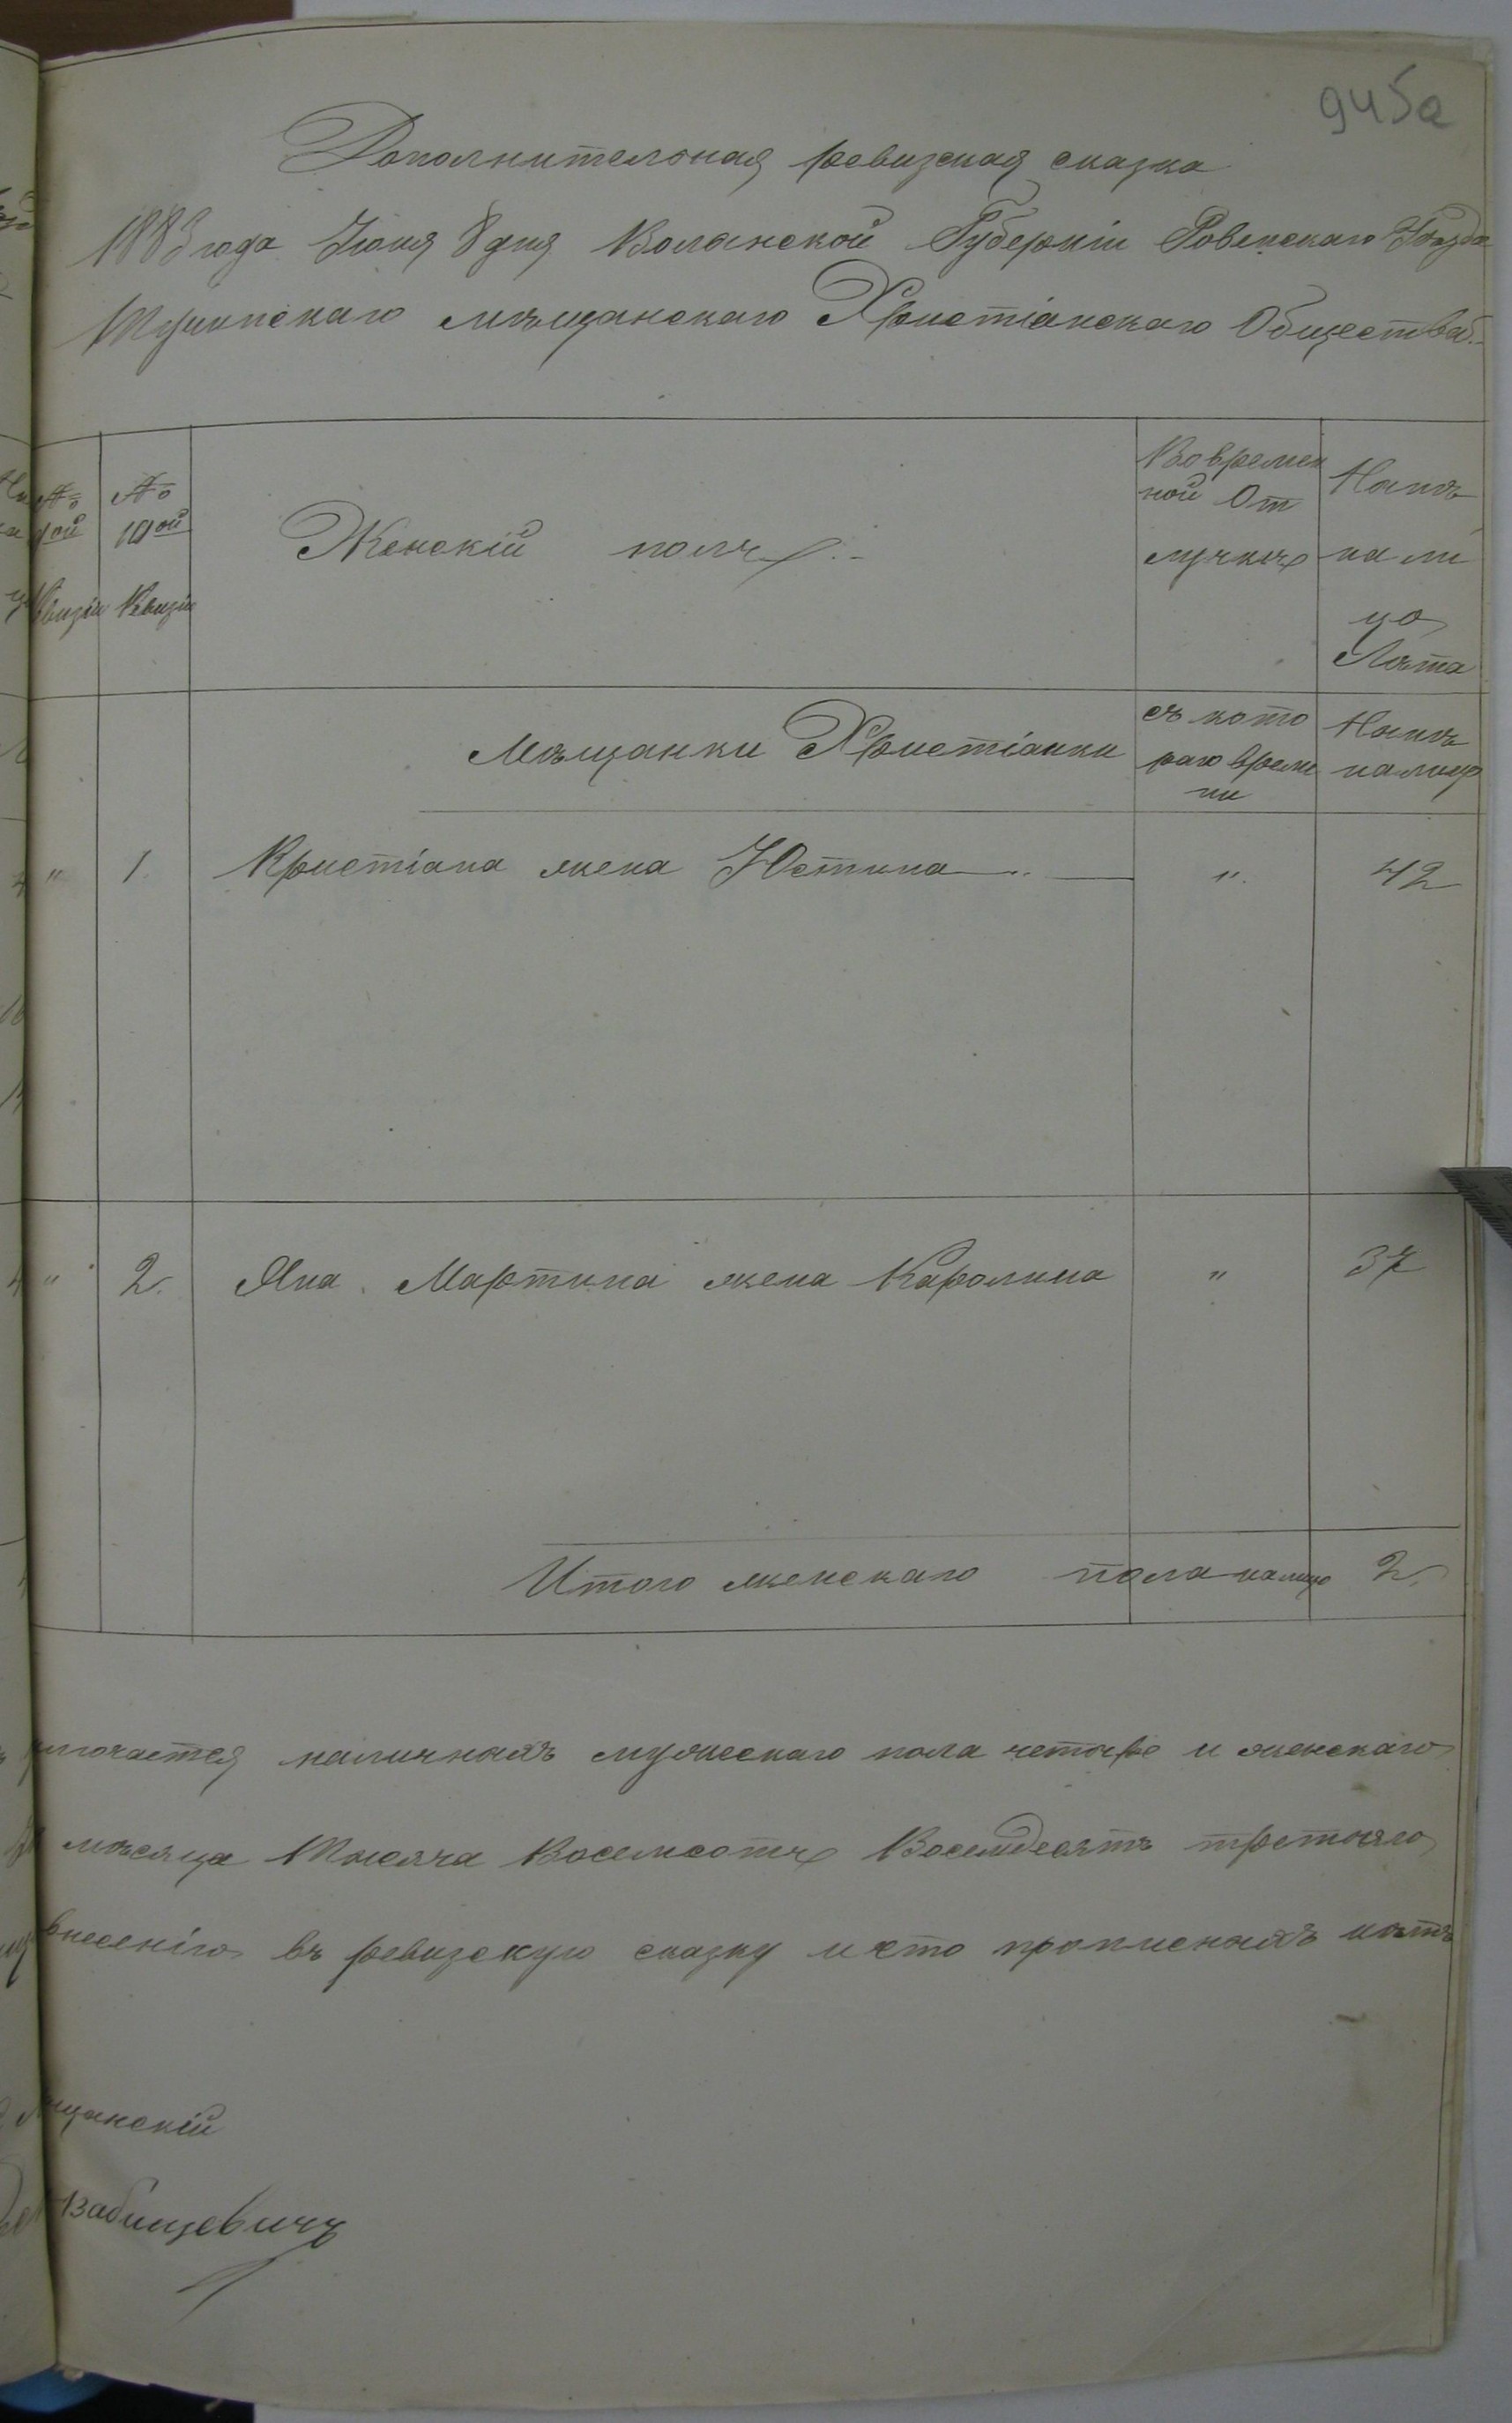 945а
Дополнительная ревизская сказка
1883 года Іюня 8 дня Волынской Губерніи Ровенскаго Уѣзда
Тучинскаго мѣщанскаго Христіанскаго Общества.
№ ой Ревизіи
№ 10ой Ревизіи
Женскій полъ
Во времен
ной От
лучкѣ
Нынѣ
на ли
цо
Лѣта
Мѣщанки Христіанки
съ кото
раго време
ни
Нынѣ
налицо
" 1. Кристіана жена Юстина " 42
" 2. Яна Мартина жена Каролина " 37
Итого женскаго пола налицо 2.
ключается наличныхъ мужескаго пола четыре и женскаго
мѣсяца Тысяча Восемсотъ Восемдесятъ третьяго
внесенію въ ревизскую сказку и что прописныхъ нѣтъ
щанскій